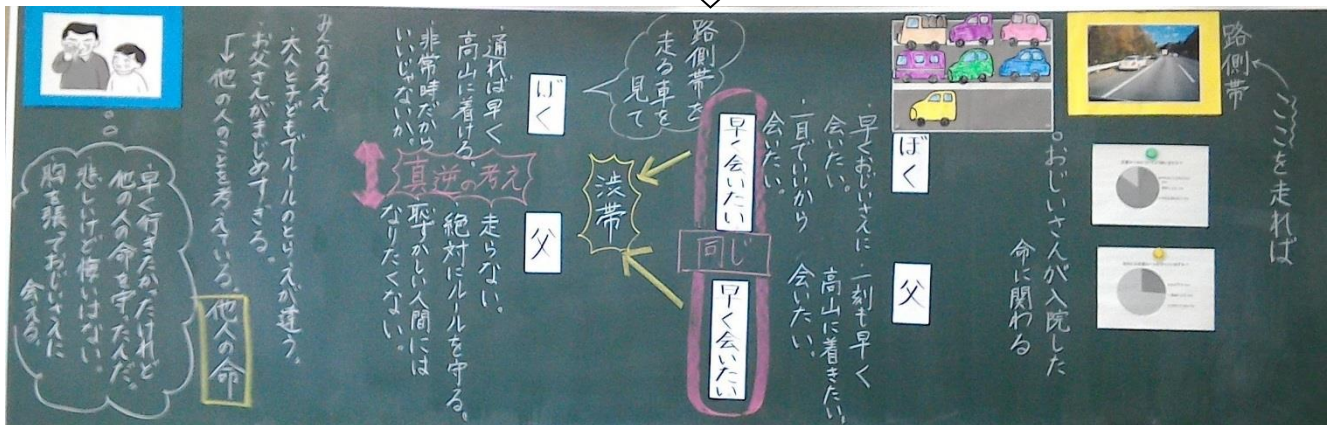 ここを走れば
路側帯
。おじいさんが入院した
命に関わる
ぼく
・早くおじいさんに
会いたい。
・一目でいいから
会いたい。
父
・一刻も早く
高山に着きたい。
会いたい。
早く会いたい
同じ
早く会いたい
路側帯を
走る車を
見て
渋帯
ぼく
・通れば早く
高山に着ける。
・非常時だから
いいじゃないか。
真逆の考え
父
・走らない。
・絶対にルールを守る。
・恥ずかしい人間には
なりたくない。
みんなの考え
・大人と子どもでルールのとらえが違う。
・お父さんがまじめすぎる。
↓他の人のことを考えている。
他人の命
・早く行きたかったけれど
他の人の命を守たんだ。
悲しいけど悔いはない。
胸を張ておじいさんに
会える。